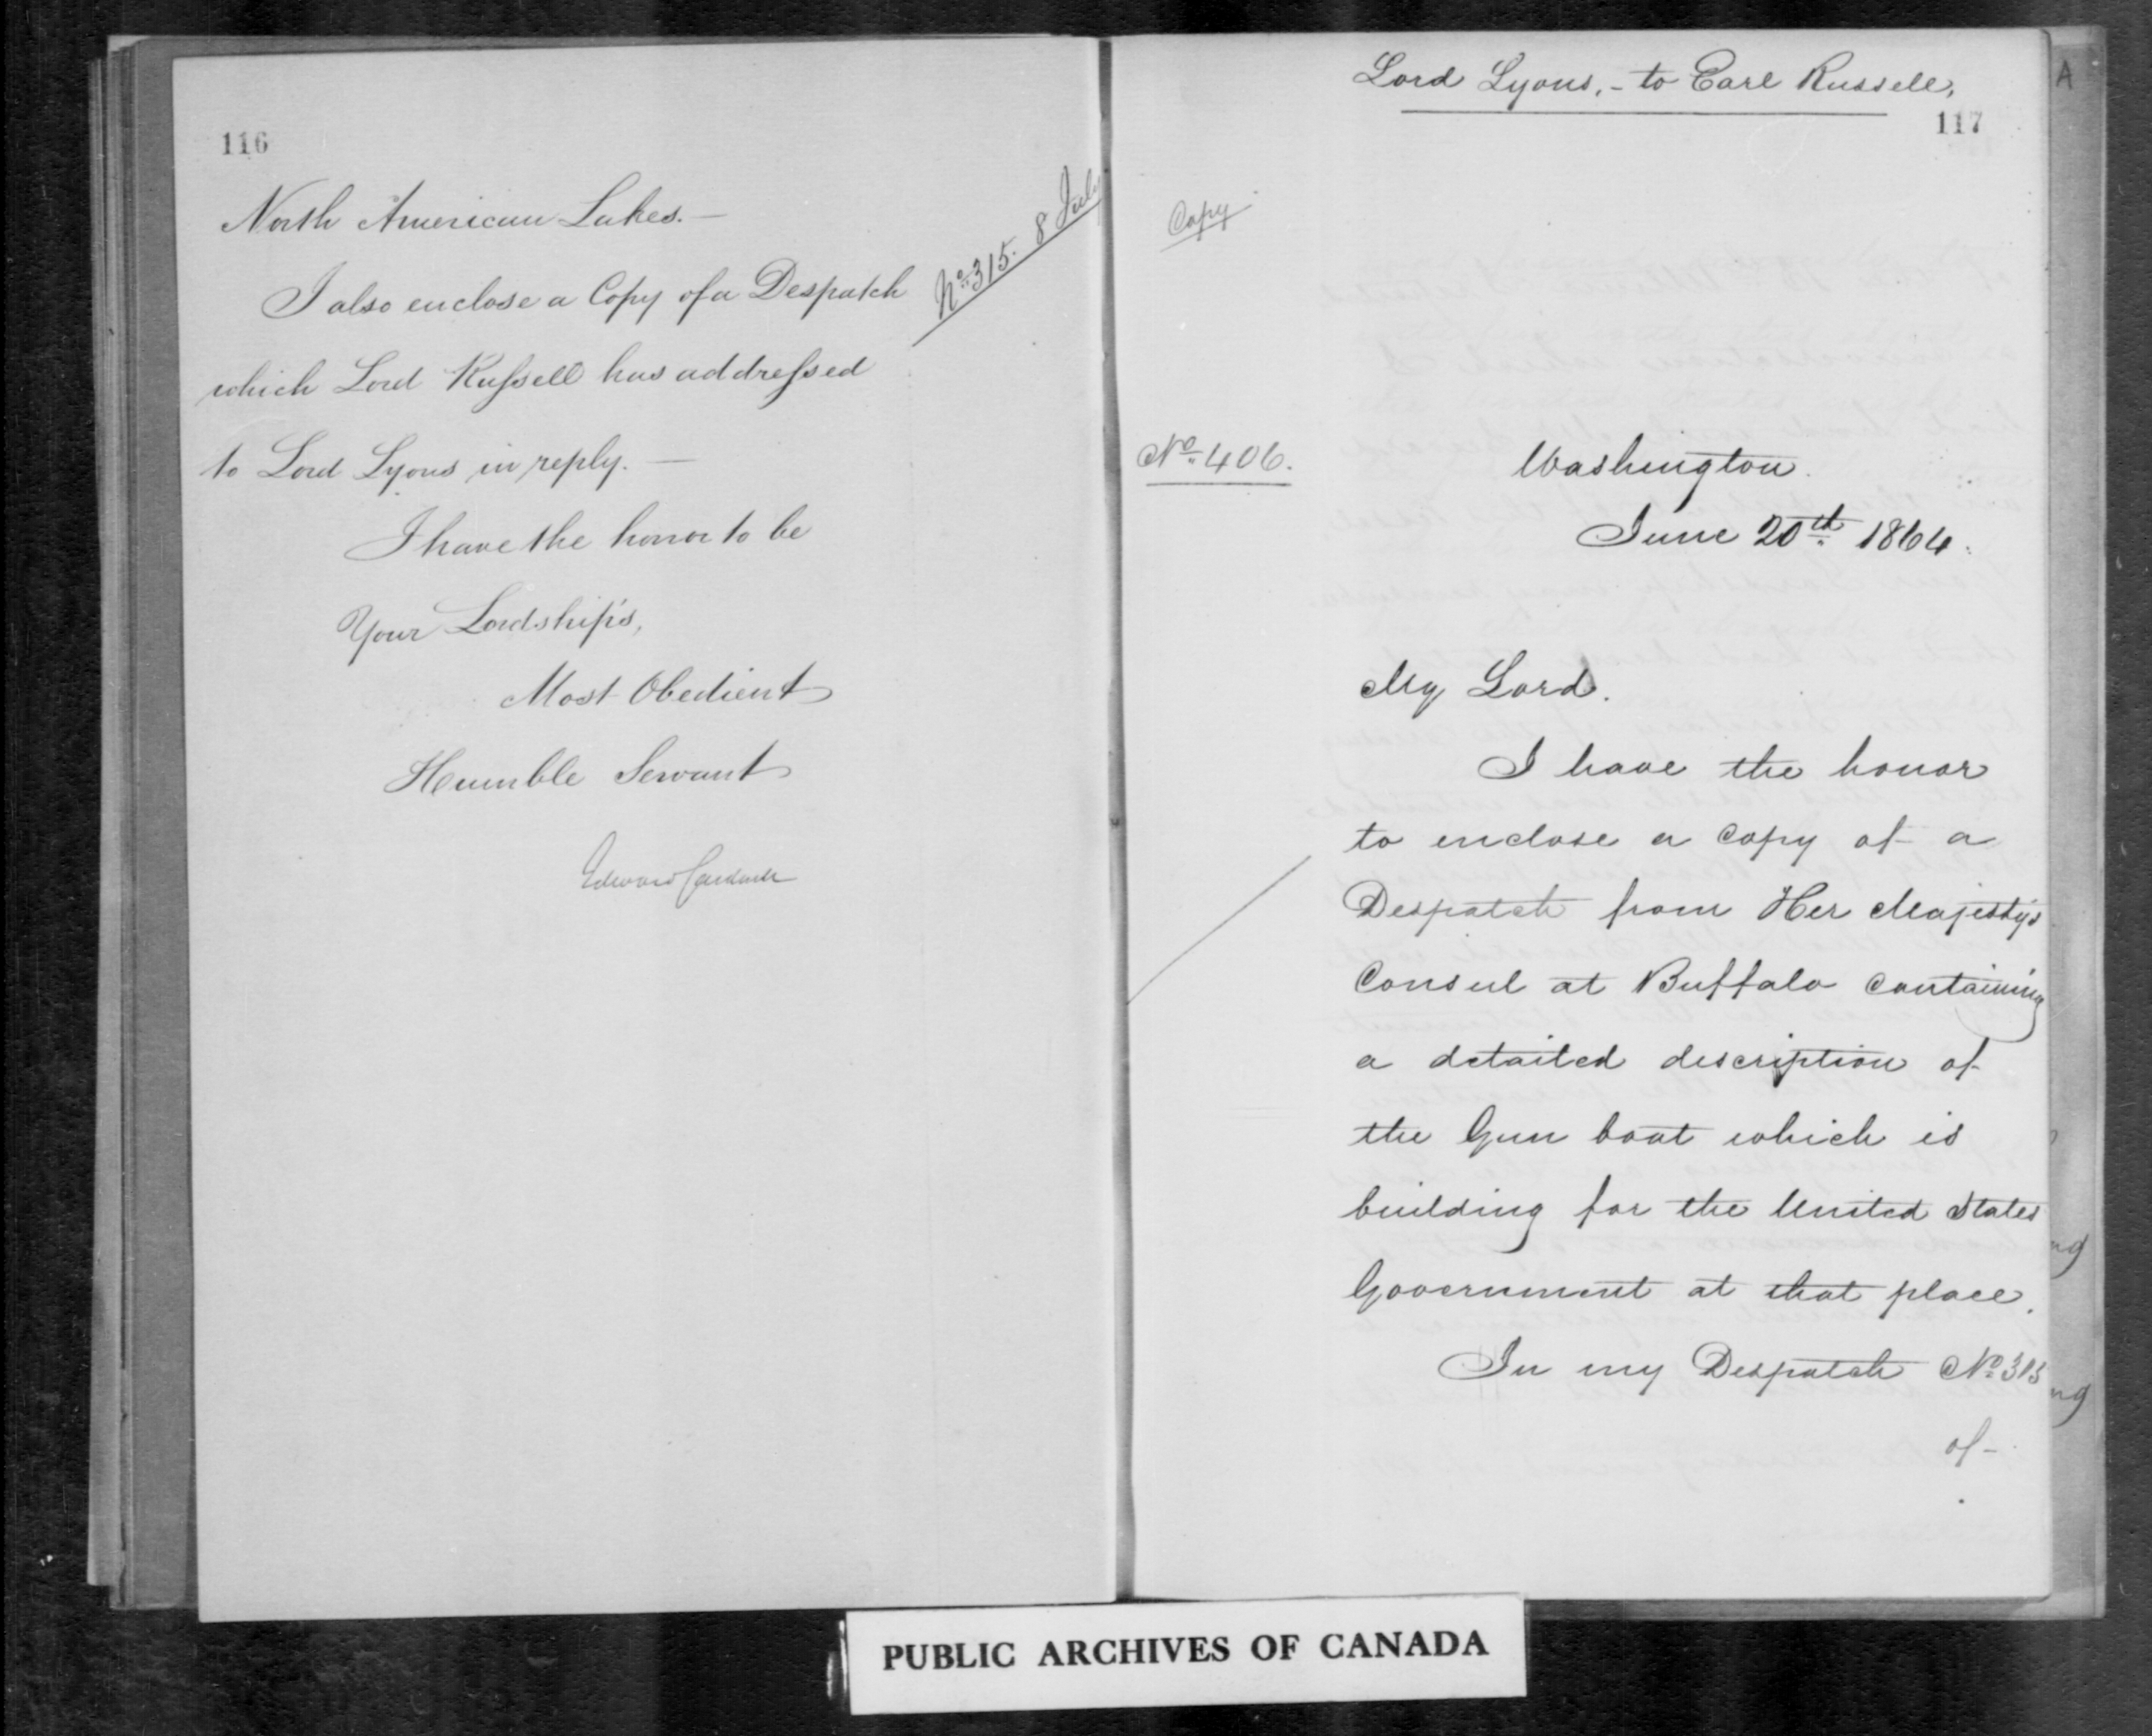 116
North American Lakes. —
I also enclose a Copy of a Despatch
No. 315. 8 July
which Lord Russell has addressed
to Lord Lyons in reply. —
I have the honor to be
Your Lordship's,
Most Obedient
Humble Servant
Edward Cardwell
Lord Lyons, - to Earl Russell,
117
Copy
No. 406.
Washington.
June 20th 1864.
My Lord.
I have the honor
to enclose a copy of a
Despatch from Her Majesty's
Consul at Buffalo containing
a detailed description of
the Gun boat which is
building for the United States
Government at that place.
In my Despatch No.
of -
A
ng
ng
PUBLIC ARCHIVES OF CANADA